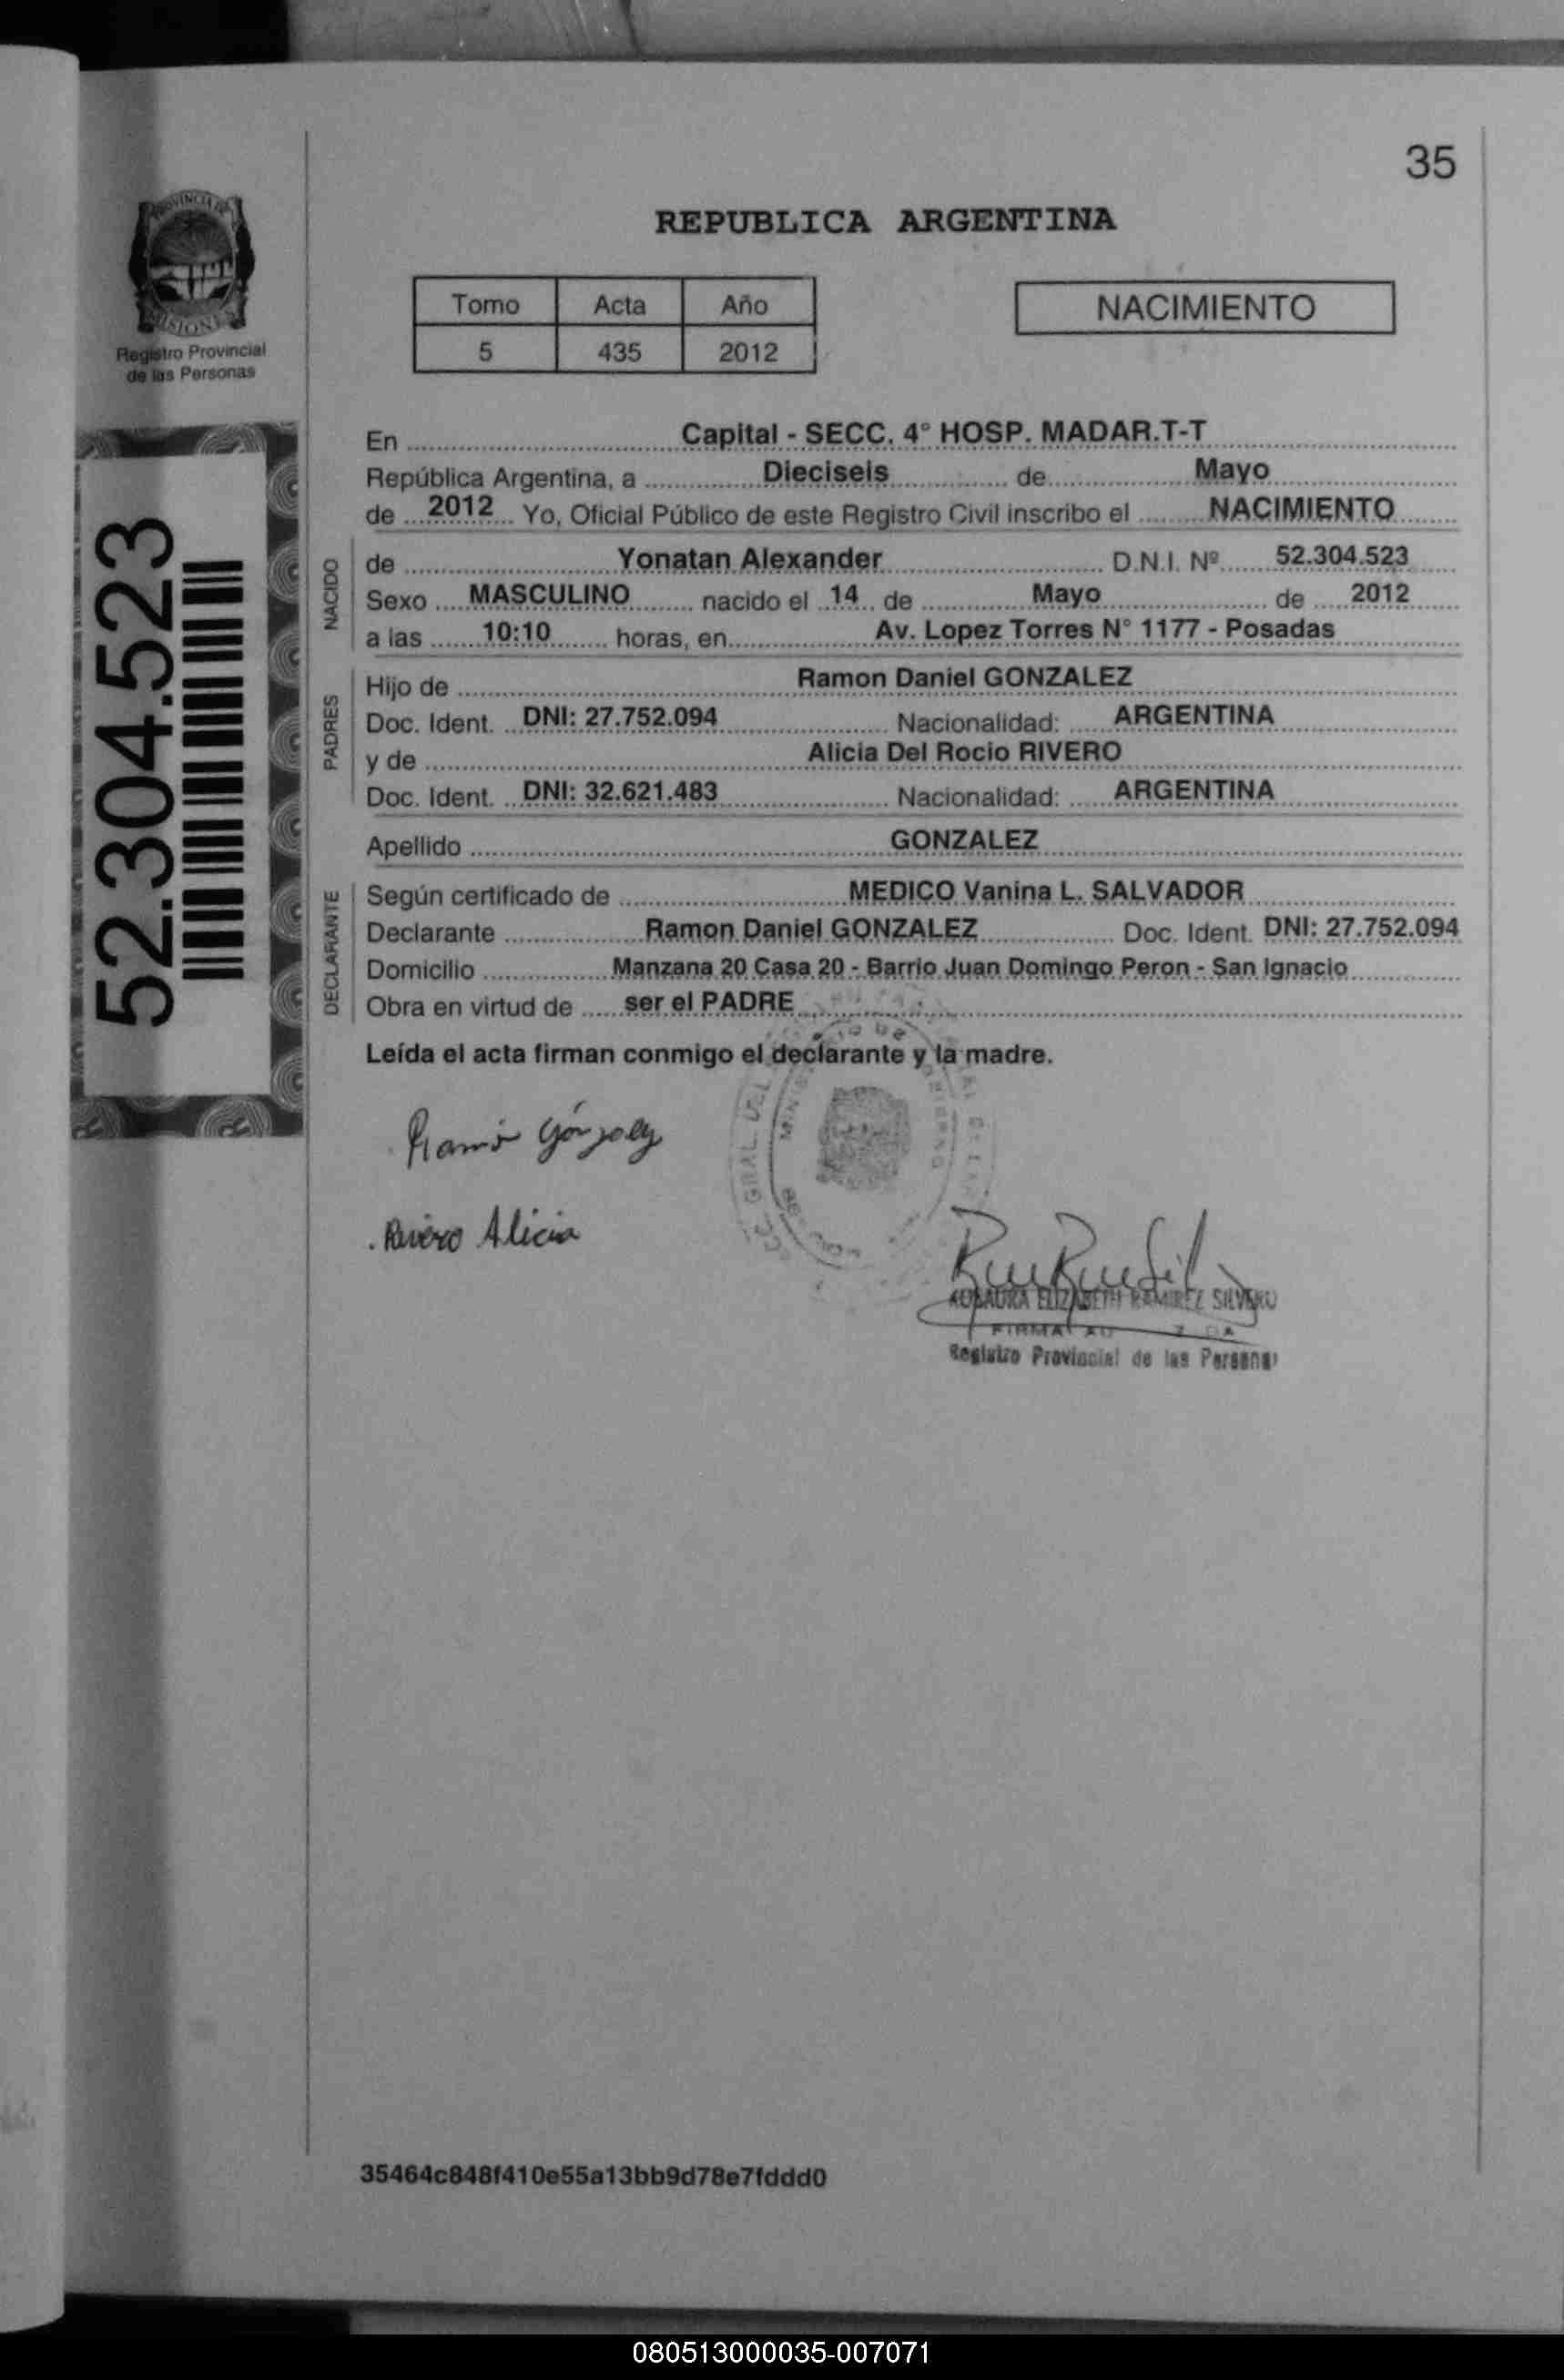 35
PROVINCIA DE
MISIONES
Registro Provincial
de las Personas
REPUBLICA ARGENTINA
Tomo Acta Año
5 435 2012
NACIMIENTO
52.304.523
En Capital - SECC. 4° HOSP. MADAR.T-T
República Argentina, a Dieciseis de Mayo
de 2012 Yo, Oficial Público de este Registro Civil inscribo el NACIMIENTO
NACIDO
de Yonatan Alexander D.N.I. Nº 52.304.523
Sexo MASCULINO nacido el 14 de Mayo de 2012
a las 10:10 horas, en Av. Lopez Torres N° 1177 - Posadas
PADRES
Hijo de Ramon Daniel GONZALEZ
Doc. Ident. DNI: 27.752.094 Nacionalidad: ARGENTINA
y de Alicia Del Rocio RIVERO
Doc. Ident. DNI: 32.621.483 Nacionalidad: ARGENTINA
Apellido GONZALEZ
DECLARANTE
Según certificado de MEDICO Vanina L. SALVADOR
Declarante Ramon Daniel GONZALEZ Doc. Ident. DNI: 27.752.094
Domicilio Manzana 20 Casa 20 - Barrio Juan Domingo Peron - San Ignacio
Obra en virtud de ser el PADRE
Leída el acta firman conmigo el declarante y la madre.
GRAL. DEL
Rivero Alicia
ELIZABETH RAMIREZ SILVERO
FIRMA
Registro Provincial de las Personas
35464c848f410e55a13bb9d78e7fddd0
080513000035-007071